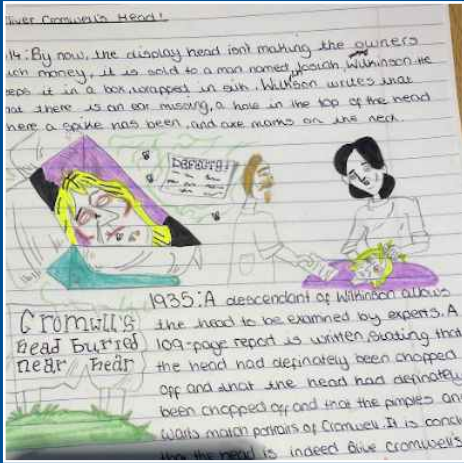 liver Cromwell's Head!
14: By now, the display head isn't making the owners
uch money, it is sold to a man named Josiah Wilkinson. He
eeps it in a box, wrapped in silk. Wilkson writes that
at there is an ear missing, a hole in the top of the head
here a spike has been, and axe marks on the neck
DEFECTS!
1935: A descendant of Wilkinson allows
the head to be examned by experts. A
109-page report is written, stating that
the head had definately been chopped
off and that the head had definately
been chopped off and that the pimples an
warts match portraits of Cromwell. It is conclu
that the head is indeed Olive cromwell's
Cromwll's
head burried
near hear